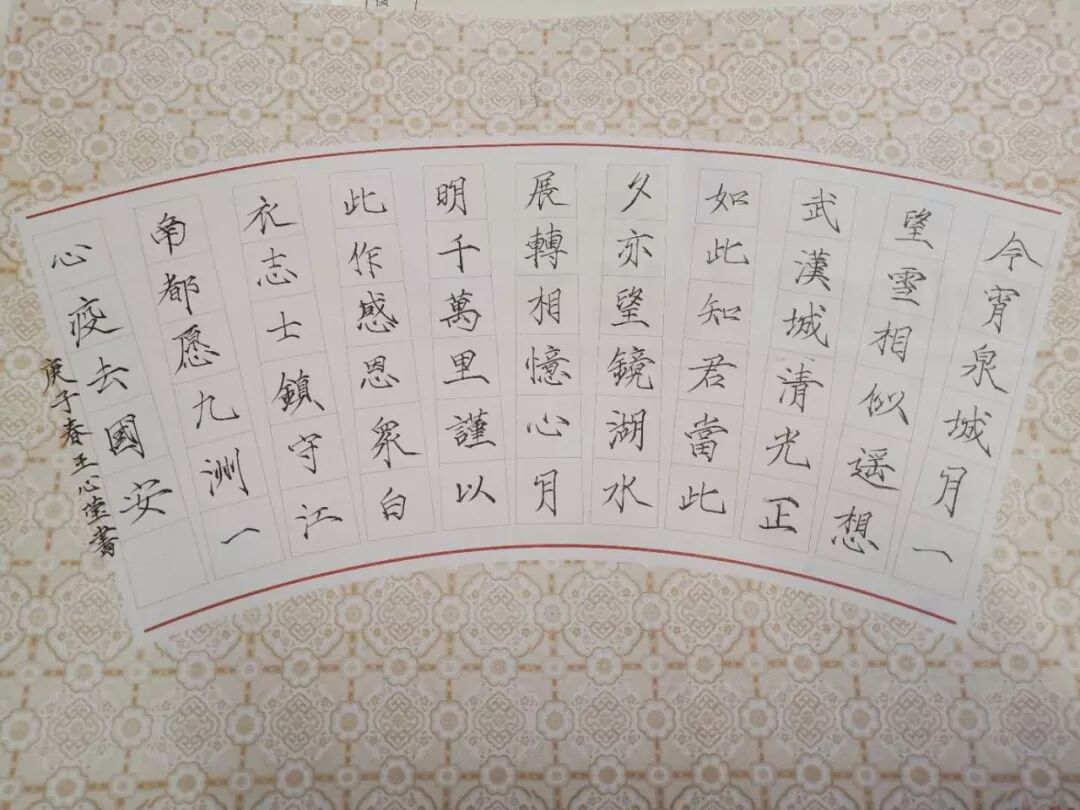 今宵泉城月一
望雪相似遥想
武漢城清光正
如此知君當此
夕亦望鏡湖水
展轉相憶心月
明千萬里謹以
此作感恩眾白
衣志士鎮守江
南都愿九洲一
心疫去國安
庚子春王心堂書